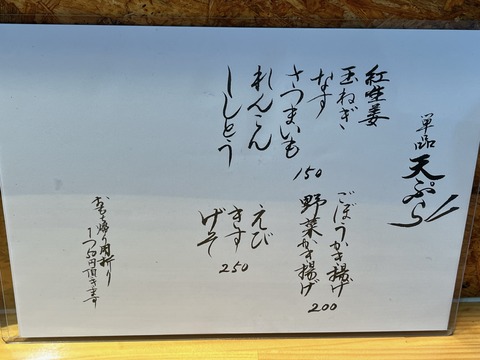 単品 天ぷら
紅生姜
玉ねぎ
なす
さつまいも
れんこん
ししとう
150
ごぼうかき揚げ
野菜かき揚げ
200
えび
きす
げそ
250
お持ち帰り用折り
1つ50円頂きます